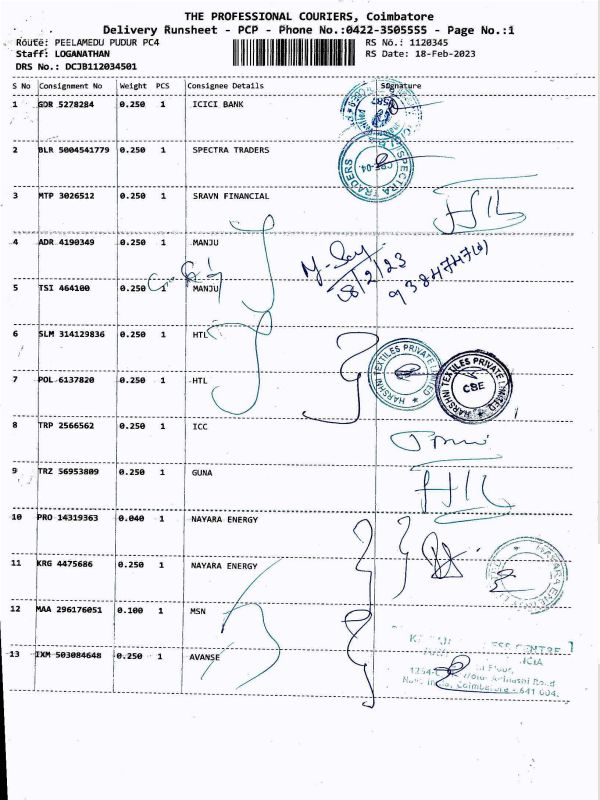 THE PROFESSIONAL COURIERS, Coimbatore
Delivery Runsheet - PCP - Phone No.:0422-3505555 - Page No.:1
Route: PEELAMEDU PUDUR PC4 RS No.: 1120345
Staff: LOGANATHAN RS Date: 18-Feb-2023
DRS No.: DCJB112034501
S No Consignment No Weight PCS Consignee Details Signature
1 GDR 5278284 0.250 1 ICICI BANK
2 BLR 5004541779 0.250 1 SPECTRA TRADERS
SPECTRA TRADERS
3 MTP 3026512 0.250 1 SRAVN FINANCIAL
4 ADR 4190349 0.250 1 MANJU
18/2/23
5 TSI 464100 0.250 1 MANJU
6 SLM 314129836 0.250 1 HTL
HARSHNI TEXTILES PRIVATE LIMITED
HARSHNI TEXTILES PRIVATE LIMITED
CBE
7 POL 6137820 0.250 1 HTL
8 TRP 2566562 0.250 1 ICC
9 TRZ 56953809 0.250 1 GUNA
10 PRO 14319363 0.040 1 NAYARA ENERGY
11 KRG 4475686 0.250 1 NAYARA ENERGY
NAYARA ENERGY
12 MAA 296176051 0.100 1 MSN
13 IXM 503084648 0.250 1 AVANSE
CENTRE
Floor,
Avinashi Road
Coimbatore - 641 004.